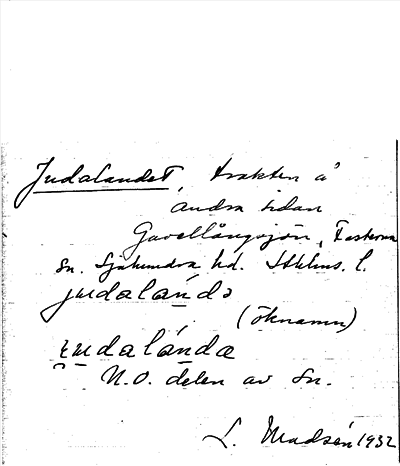 Judalandet, trakten å
andra sidan
Gavellångsjön, Fasterna
sn. Sjuhundra hd. Sthlms. l.
judalándə
(öknamn)
ɪudalánda
N.O. delen av sn.
L. Madsén 1932